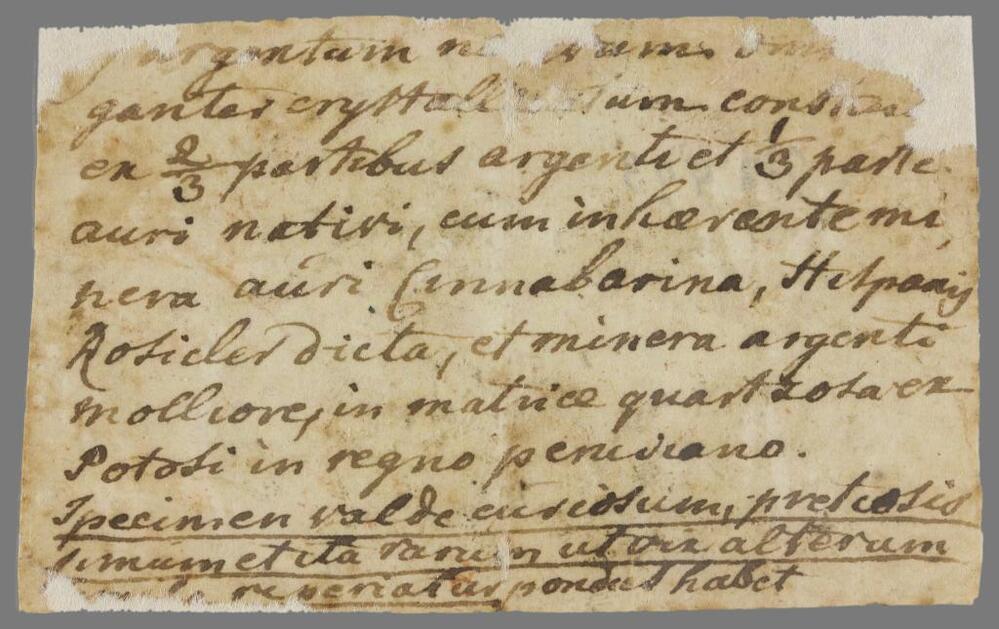 argentum
ganter
ex 2/3 partibus argenti et 1/3 parte
auri nativi, cum inhærente mi,
nera auri Cinnabarina, Hispanis
Rosicler dicta, et minera argenti
molliore, in matrice quartzosa ex
Potosi in regno peruviano.
Specimen valde curiosum, pretiosis
simum et ita rarum ut vix alterum
reperiatur pondus habet